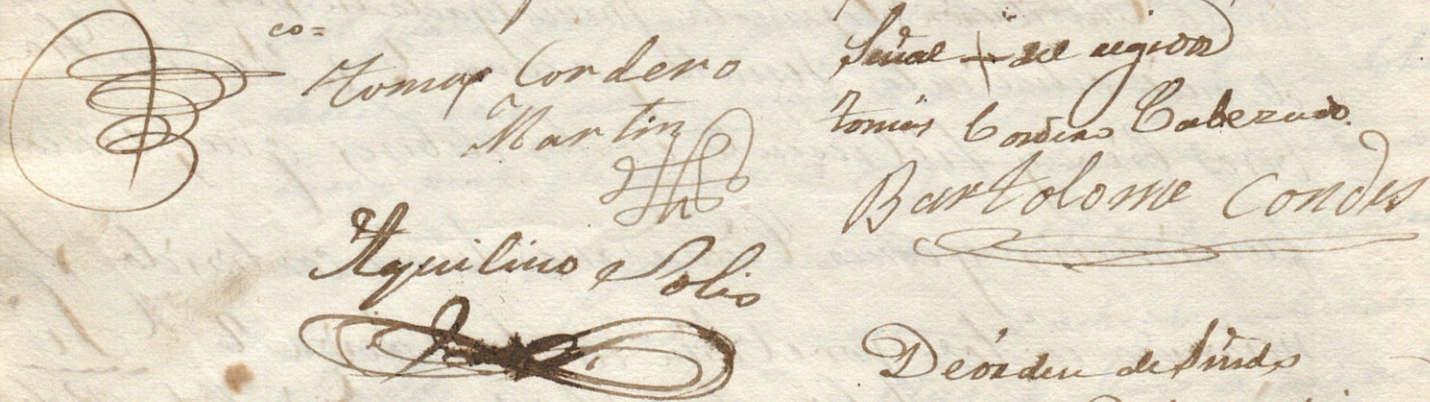 co=
Tomas Cordero
Martin
Aquilino Solis
Señal + del regidor
Tomás Cordero Cabezudo.
Bartolome Condes
De órden de